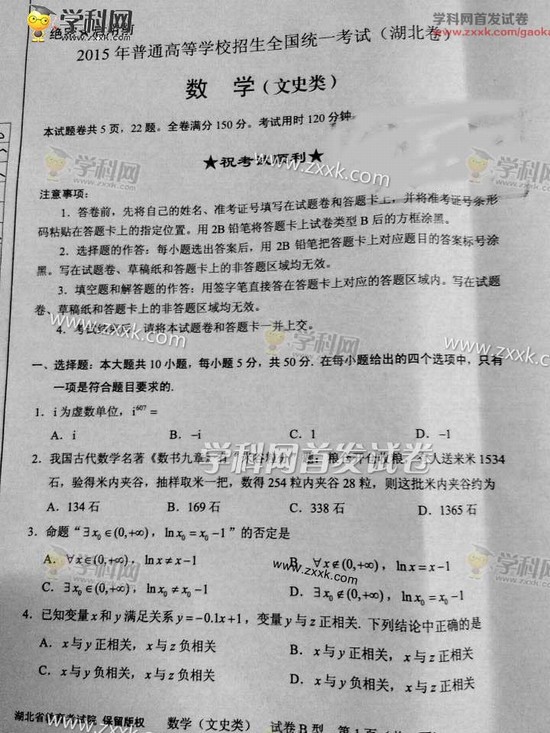 学科网首发试卷
www.zxxk.com
2015年普通高等学校招生全国统一考试（湖北卷）
数 学（文史类）
本试题卷共5页，22题。全卷满分150分。考试用时120分钟。
学科网
学科网
www.zxxk.com
★祝考试顺利★
注意事项：
1．答卷前，先将自己的姓名、准考证号填写在试题卷和答题卡上，并将准考证号条形
码粘贴在答题卡上的指定位置。用2B铅笔将答题卡上试卷类型B后的方框涂黑。
2．选择题的作答：每小题选出答案后，用2B铅笔把答题卡上对应题目的答案标号涂
黑。写在试题卷、草稿纸和答题卡上的非答题区域均无效。
3．填空题和解答题的作答：用签字笔直接答在答题卡上对应的答题区域内。写在试题
卷、草稿纸和答题卡上的非答题区域均无效。
www.zxxk.com
www.zxxk.com
4．考试结束后，请将本试题卷和答题卡一并上交。
一、选择题：本大题共10小题，每小题5分，共50分．在每小题给出的四个选项中，只有
一项是符合题目要求的．
1．i为虚数单位，i⁶⁰⁷＝
A．i B．-i C．1 D．-1
学科网首发试卷
2．我国古代数学名著《数书九章》有 人送来米1534
石，验得米内夹谷，抽样取米一把，数得254粒内夹谷28粒，则这批米内夹谷约为
A．134石 B．169石 C．338石 D．1365石
3．命题“∃x₀∈(0,+∞)，ln x₀ = x₀ -1”的否定是
A．∀x∈(0,+∞)，ln x ≠ x-1 B．∀x∉(0,+∞)，ln x = x-1
C．∃x₀∈(0,+∞)，ln x₀ ≠ x₀ -1 D．∃x₀∉(0,+∞)，ln x₀ = x₀ -1
学科网
学科网
www.zxxk.com
4．已知变量x和y满足关系y=-0.1x+1，变量y与z正相关．下列结论中正确的是
A．x与y正相关，x与z负相关 B．x与y正相关，x与z正相关
C．x与y负相关，x与z负相关 D．x与y负相关，x与z正相关
湖北省教育考试院 保留版权 数学（文史类） 试卷B型 第1页